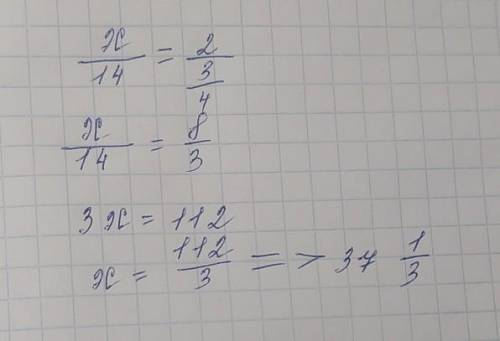 x/14 = 2/(3/4)
x/14 = 8/3
3x = 112
x = 112/3 => 37 1/3